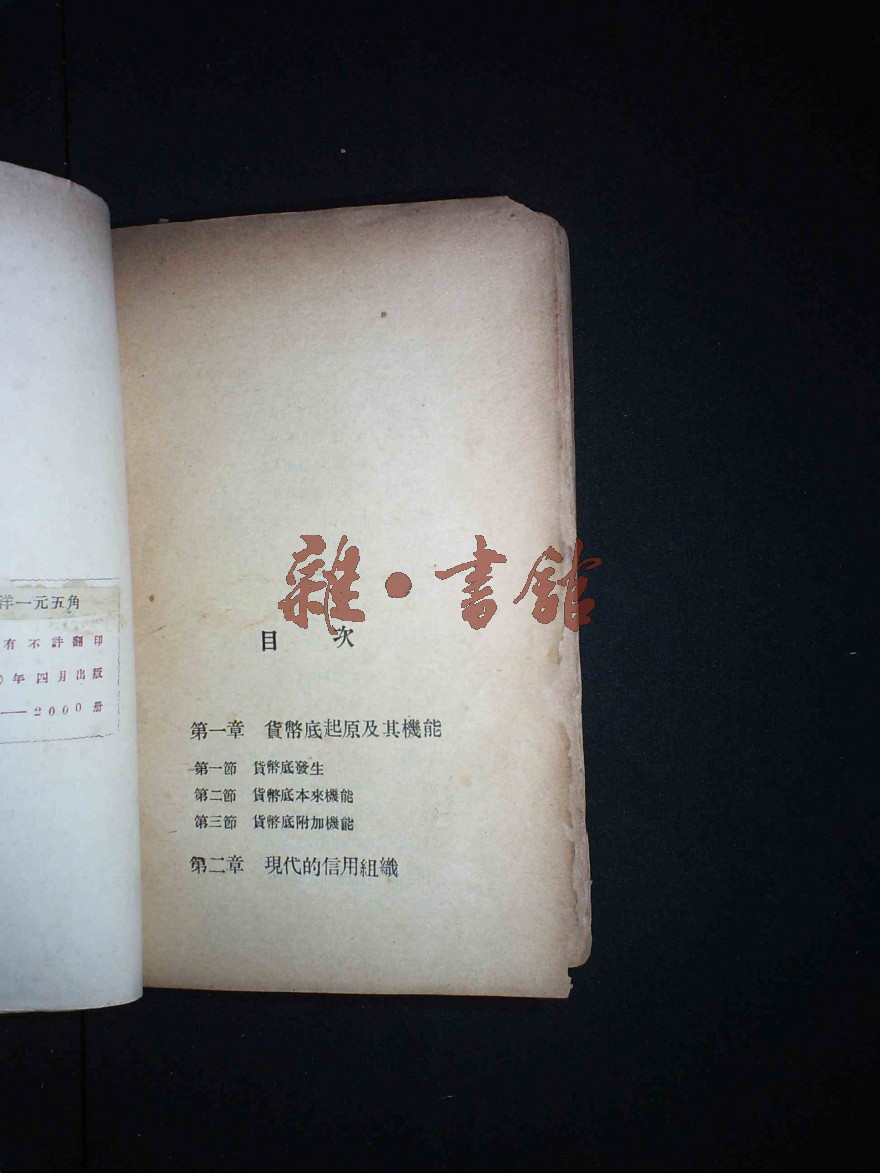 洋一元五角
有不許翻印
年四月出版
——2000册
雜·書館
目 次
第一章 貨幣底起原及其機能
第一節 貨幣底發生
第二節 貨幣底本來機能
第三節 貨幣底附加機能
第二章 現代的信用組織